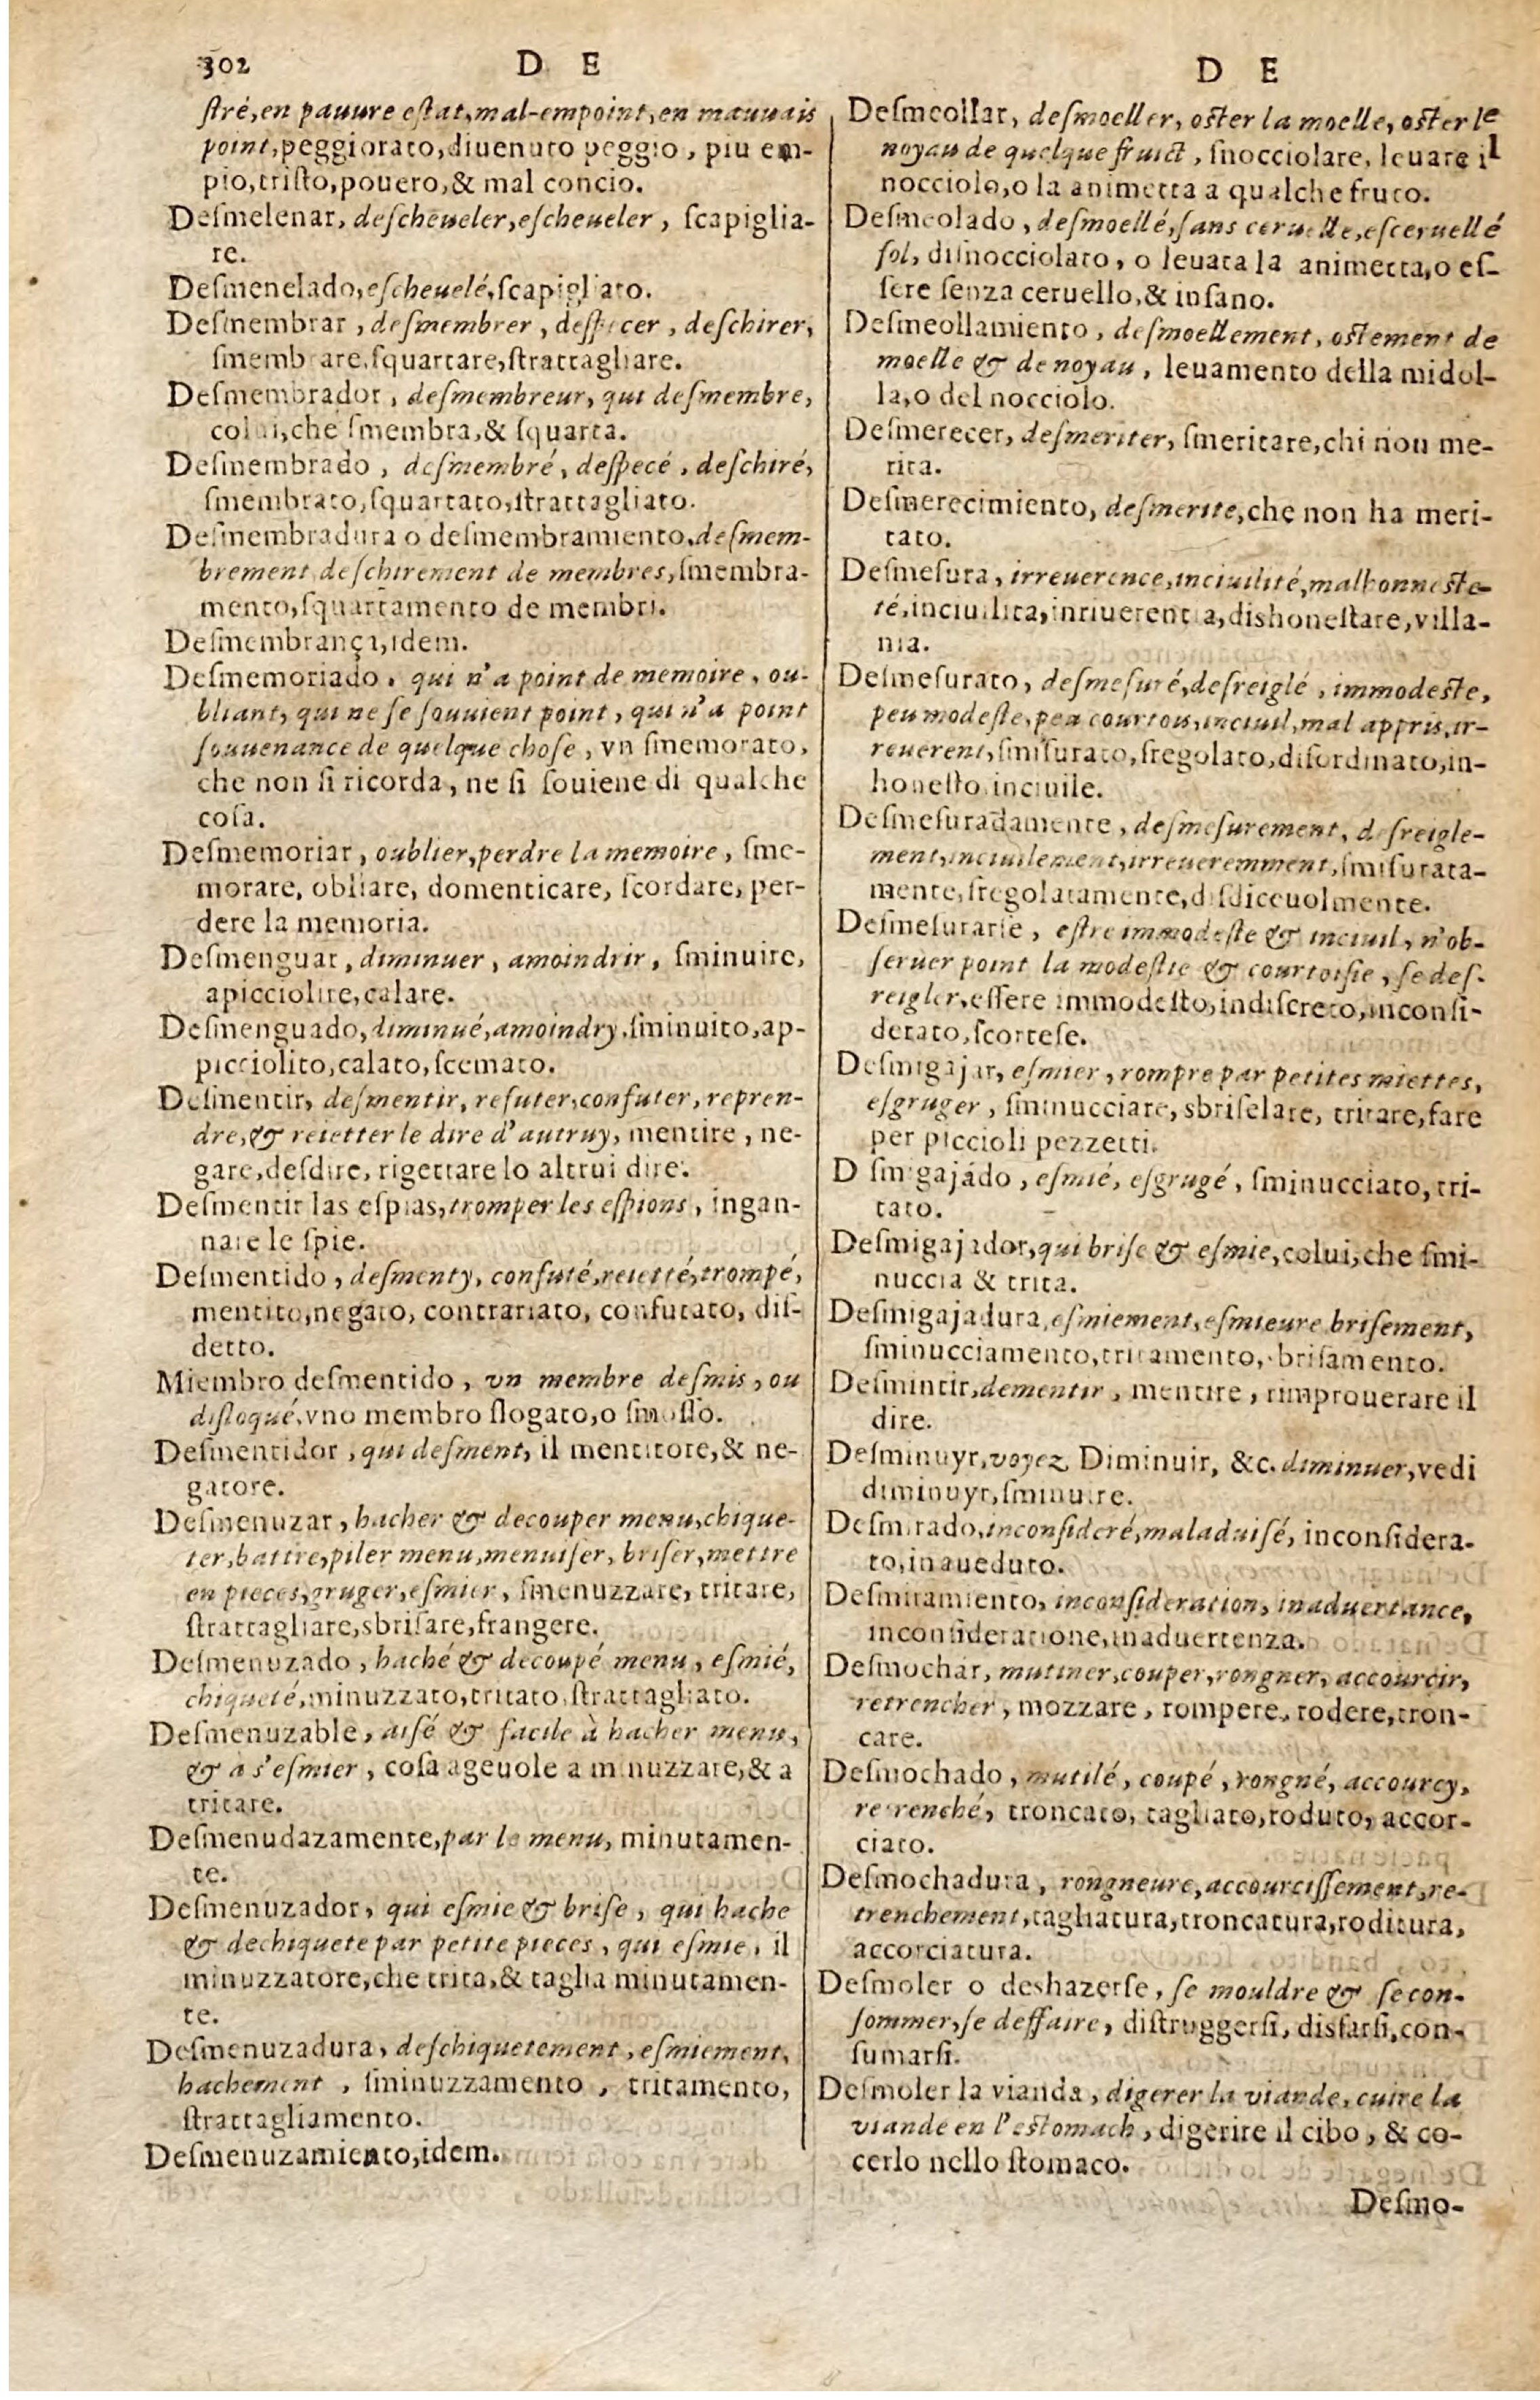 302 D E
ſtré, en pauure eſtat, mal-empoint, en mauuais
point, peggiorato, diuenuto peggio, piu em-
pio, triſto, pouero, & mal concio.
Deſmelenar, deſcheueler, eſcheueler, ſcapiglia-
re.
Deſmenelado, eſcheuelé, ſcapigliato.
Deſmembrar, deſmembrer, deſpecer, deſchirer,
ſmembrare, ſquartare, ſtrattagliare.
Deſmembrador, deſmembreur, qui deſmembre,
colui, che ſmembra, & ſquarta.
Deſmembrado, deſmembré, deſpecé, deſchiré,
ſmembrato, ſquartato, ſtrattagliato.
Deſmembradura o deſmembramiento, deſmem-
brement, deſchirement de membres, ſmembra-
mento, ſquartamento de membri.
Deſmembrança, idem.
Deſmemoriado, qui n'a point de memoire, ou-
bliant, qui ne ſe ſouuient point, qui n'a point
ſouuenance de quelque choſe, vn ſmemorato,
che non ſi ricorda, ne ſi ſouiene di qualche
coſa.
Deſmemoriar, oublier, perdre la memoire, ſme-
morare, obliare, domenticare, ſcordare, per-
dere la memoria.
Deſmenguar, diminuer, amoindrir, ſminuire,
apicciolire, calare.
Deſmenguado, diminué, amoindry, ſminuito, ap-
picciolito, calato, ſcemato.
Deſmentir, deſmentir, refuter, confuter, repren-
dre, & reietter le dire d'autruy, mentire, ne-
gare, deſdire, rigettare lo altrui dire.
Deſmentir las eſpias, tromper les eſpions, ingan-
nare le ſpie.
Deſmentido, deſmenty, confuté, reietté, trompé,
mentito, negato, contrariato, confutato, diſ-
detto.
Miembro deſmentido, vn membre deſmis, ou
diſloqué, vno membro ſlogato, o ſmoſſo.
Deſmentidor, qui deſment, il mentitore, & ne-
gatore.
Deſmenuzar, hacher & decouper menu, chique-
ter, battre, piler menu, menuiſer, briſer, mettre
en pieces, gruger, eſmier, ſmenuzzare, tritare,
ſtrattagliare, sbriſare, frangere.
Deſmenuzado, haché & decoupé menu, eſmié,
chiqueté, minuzzato, tritato, ſtrattagliato.
Deſmenuzable, aiſé & facile à hacher menu,
& à s'eſmier, coſa ageuole a minuzzare, & a
tritare.
Deſmenudazamente, par le menu, minutamen-
te.
Deſmenuzador, qui eſmie & briſe, qui hache
& dechiquete par petite pieces, qui eſmie, il
minuzzatore, che trita, & taglia minutamen-
te.
Deſmenuzadura, deſchiquetement, eſmiement,
hachement, ſminuzzamento, tritamento,
ſtrattagliamento.
Deſmenuzamiento, idem.
D E
Deſmeollar, deſmoeller, oſter la moelle, oſter le
noyau de quelque fruict, ſnocciolare, leuare il
nocciolo, o la animetta a qualche fruto.
Deſmeolado, deſmoellé, ſans ceruelle, eſceruellé
fol, diſnocciolato, o leuata la animetta, o eſ-
ſere ſenza ceruello, & inſano.
Deſmeollamiento, deſmoellement, oſtement de
moelle & de noyau, leuamento della midol-
la, o del nocciolo.
Deſmerecer, deſmeriter, ſmeritare, chi non me-
rita.
Deſmerecimiento, deſmerite, che non ha meri-
tato.
Deſmeſura, irreuerence, inciuilité, malhonneſte-
té, inciuilita, inriuerentia, dishoneſtare, villa-
nia.
Deſmeſurato, deſmeſuré, deſreiglé, immodeſte,
peu modeſte, peu courtois, inciuil, mal appris, ir-
reuerent, ſmiſurato, ſregolato, diſordinato, in-
honeſto, inciuile.
Deſmeſuradamente, deſmeſurement, deſreigle-
ment, inciuilement, irreueremment, ſmiſurata-
mente, ſregolatamente, diſdiceuolmente.
Deſmeſurarſe, eſtre immodeſte & inciuil, n'ob-
ſeruer point la modeſtie & courtoiſie, ſe deſ-
reigler, eſſere immodeſto, indiſcreto, inconſi-
derato, ſcorteſe.
Deſmigajar, eſmier, rompre par petites miettes,
eſgruger, ſminucciare, sbriſelare, tritare, fare
per piccioli pezzetti.
D ſmigajado, eſmié, eſgrugé, ſminucciato, tri-
tato.
Deſmigajador, qui briſe & eſmie, colui, che ſmi-
nuccia & trita.
Deſmigajadura, eſmiement, eſmieure, briſement,
ſminucciamento, tritamento, briſamento.
Deſmintir, dementir, mentire, rimprouerare il
dire.
Deſminuyr, voyez Diminuir, &c. diminuer, vedi
diminuyr, ſminuire.
Deſmirado, inconſideré, maladuiſé, inconſidera-
to, inaueduto.
Deſmiramiento, inconſideration, inaduertance,
inconſideratione, inaduertenza.
Deſmochar, mutiner, couper, rongner, accourcir,
retrencher, mozzare, rompere, rodere, tron-
care.
Deſmochado, mutilé, coupé, rongné, accourcy,
retrenché, troncato, tagliato, roduto, accor-
ciato.
Deſmochadura, rongneure, accourciſſement, re-
trenchement, tagliatura, troncatura, roditura,
accorciatura.
Deſmoler o deshazerſe, ſe mouldre & ſe con-
ſommer, ſe deffaire, diſtruggerſi, disfarſi, con-
ſumarſi.
Deſmoler la vianda, digerer la viande, cuire la
viande en l'eſtomach, digerire il cibo, & co-
cerlo nello ſtomaco.
Deſmo-